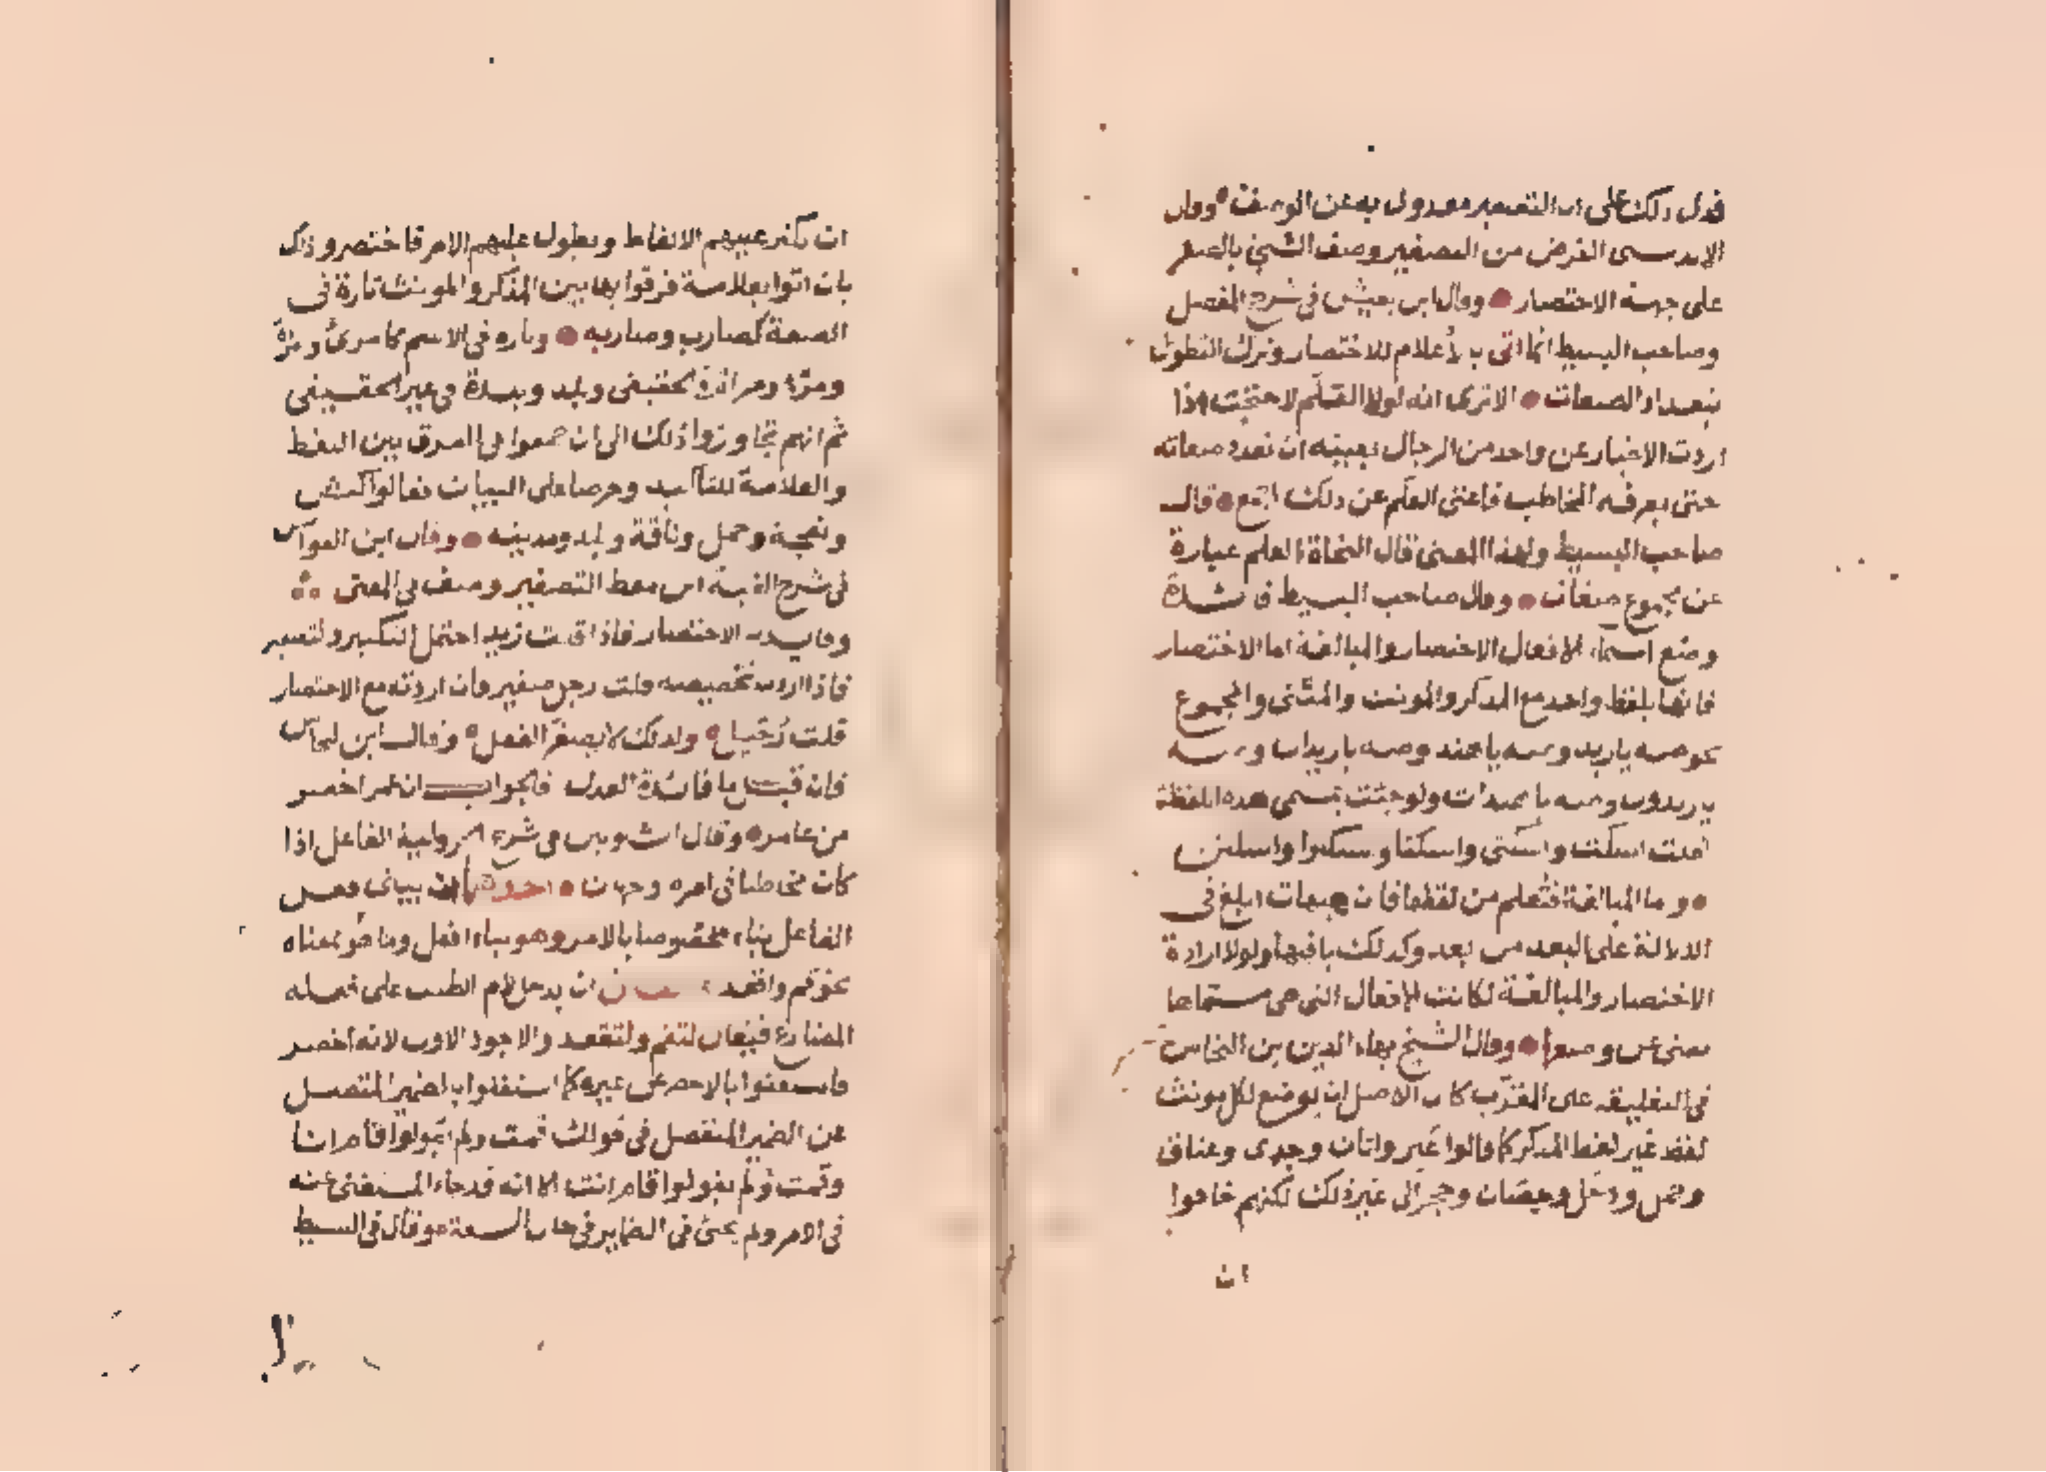 فدل ذلك على ان التصغير معدول به عن الوصف وقال
الاندلسى الغرض من التصغير وصف الشىء بالصغر
على جهة الاختصار وقال ابن يعيش فى شرح المفصل
وصاحب البسيط انما اتى بالأعلام للاختصار وترك التطويل
بتعداد الصفات الاترى انه لولا العلم لاحتجت اذا
اردت الاخبار عن واحد من الرجال بعينه ان تعدد صفاته
حتى يعرفه المخاطب فاغنى العلم عن ذلك اجمع قال
صاحب البسيط ولهذا المعنى قال النحاة العلم عبارة
عن مجموع صفات وقال صاحب البسيط فائدة
وضع اسماء الافعال الاختصار والمبالغة اما الاختصار
فانها بلفظ واحد مع المذكر والمونث والمثنى والمجموع
نحو صه يا زيد وصه يا هند وصه يا زيدان وصه
يا زيدون وصه يا هندات ولو جئت بمسمى هذه اللفظة
لقلت اسكت واسكتى واسكتا واسكتوا واسكتن
واما المبالغة فتعلم من لفظها فان هيهات ابلغ فى
الدلالة على البعد من بعد وكذلك باقيها ولولا ارادة
الاختصار والمبالغة لكانت الافعال التى هى مسماها
تغنى عن وضعها وقال الشيخ بهاء الدين بن النحاس
فى التعليقة على المقرب كان الاصل ان يوضع لكل مونث
لفظ غير لفظ المذكر كما قالوا عير واتان وجدى وعناق
وحمل ورخل وحصان وحجر الى غير ذلك لكنهم خافوا
ان
ان تكثر عليهم الالفاظ ويطول عليهم الامر فاختصروا ذلك
بان اتوا بعلامة فرقوا بها بين المذكر والمونث تارة فى
الصفة كضارب وضاربة وتارة فى الاسم كامرئ و
ومرء ومراة فى الحقيقى وبلد وبلدة فى غير الحقيقى
ثم انهم تجاوزوا ذلك الى ان جمعوا فى الفرق بين اللفظ
والعلامة للتاكيد وحرصا على البيان فقالوا كبش
ونعجة وجمل وناقة وبلد ومدينة وقال ابن القواس
فى شرح الفية ابن معط التصغير وصف فى المعنى
وفايدته الاختصار فاذا قلت زيد احتمل التكبير والتصغير
فاذا اردت تخصيصه قلت رجل صغير فان اردته مع الاختصار
قلت رجيل ولذلك لا يصغر الفعل وقال ابن النحاس
فان قيل ما فائدة العدل فالجواب ان عمر اخصر
من عامر وقال الشلوبين فى شرح الجزولية الفاعل اذا
كان مخاطبا فى امره وجهان احدهما ان يبنى فعل
الفاعل بناء مخصوصا بالامر وهو بناء افعل وما هو بمعناه
نحو قم واقعد والثانى ان يدخل لام الطلب على فعله
المضارع فيقال لتقم ولتقعد والاجود الاول لانه اخصر
فاستغنوا بالاخصر عن غيره كما استغنوا بالضمير المتصل
عن الضمير المنفصل فى قولك قمت ولم يقولوا قام انا
وقمت ولم يقولوا قام انت الا انه قد جاء المستغنى عنه
فى الامر ولم يجئ فى الضماير فى حال السعة وقال فى البسيط